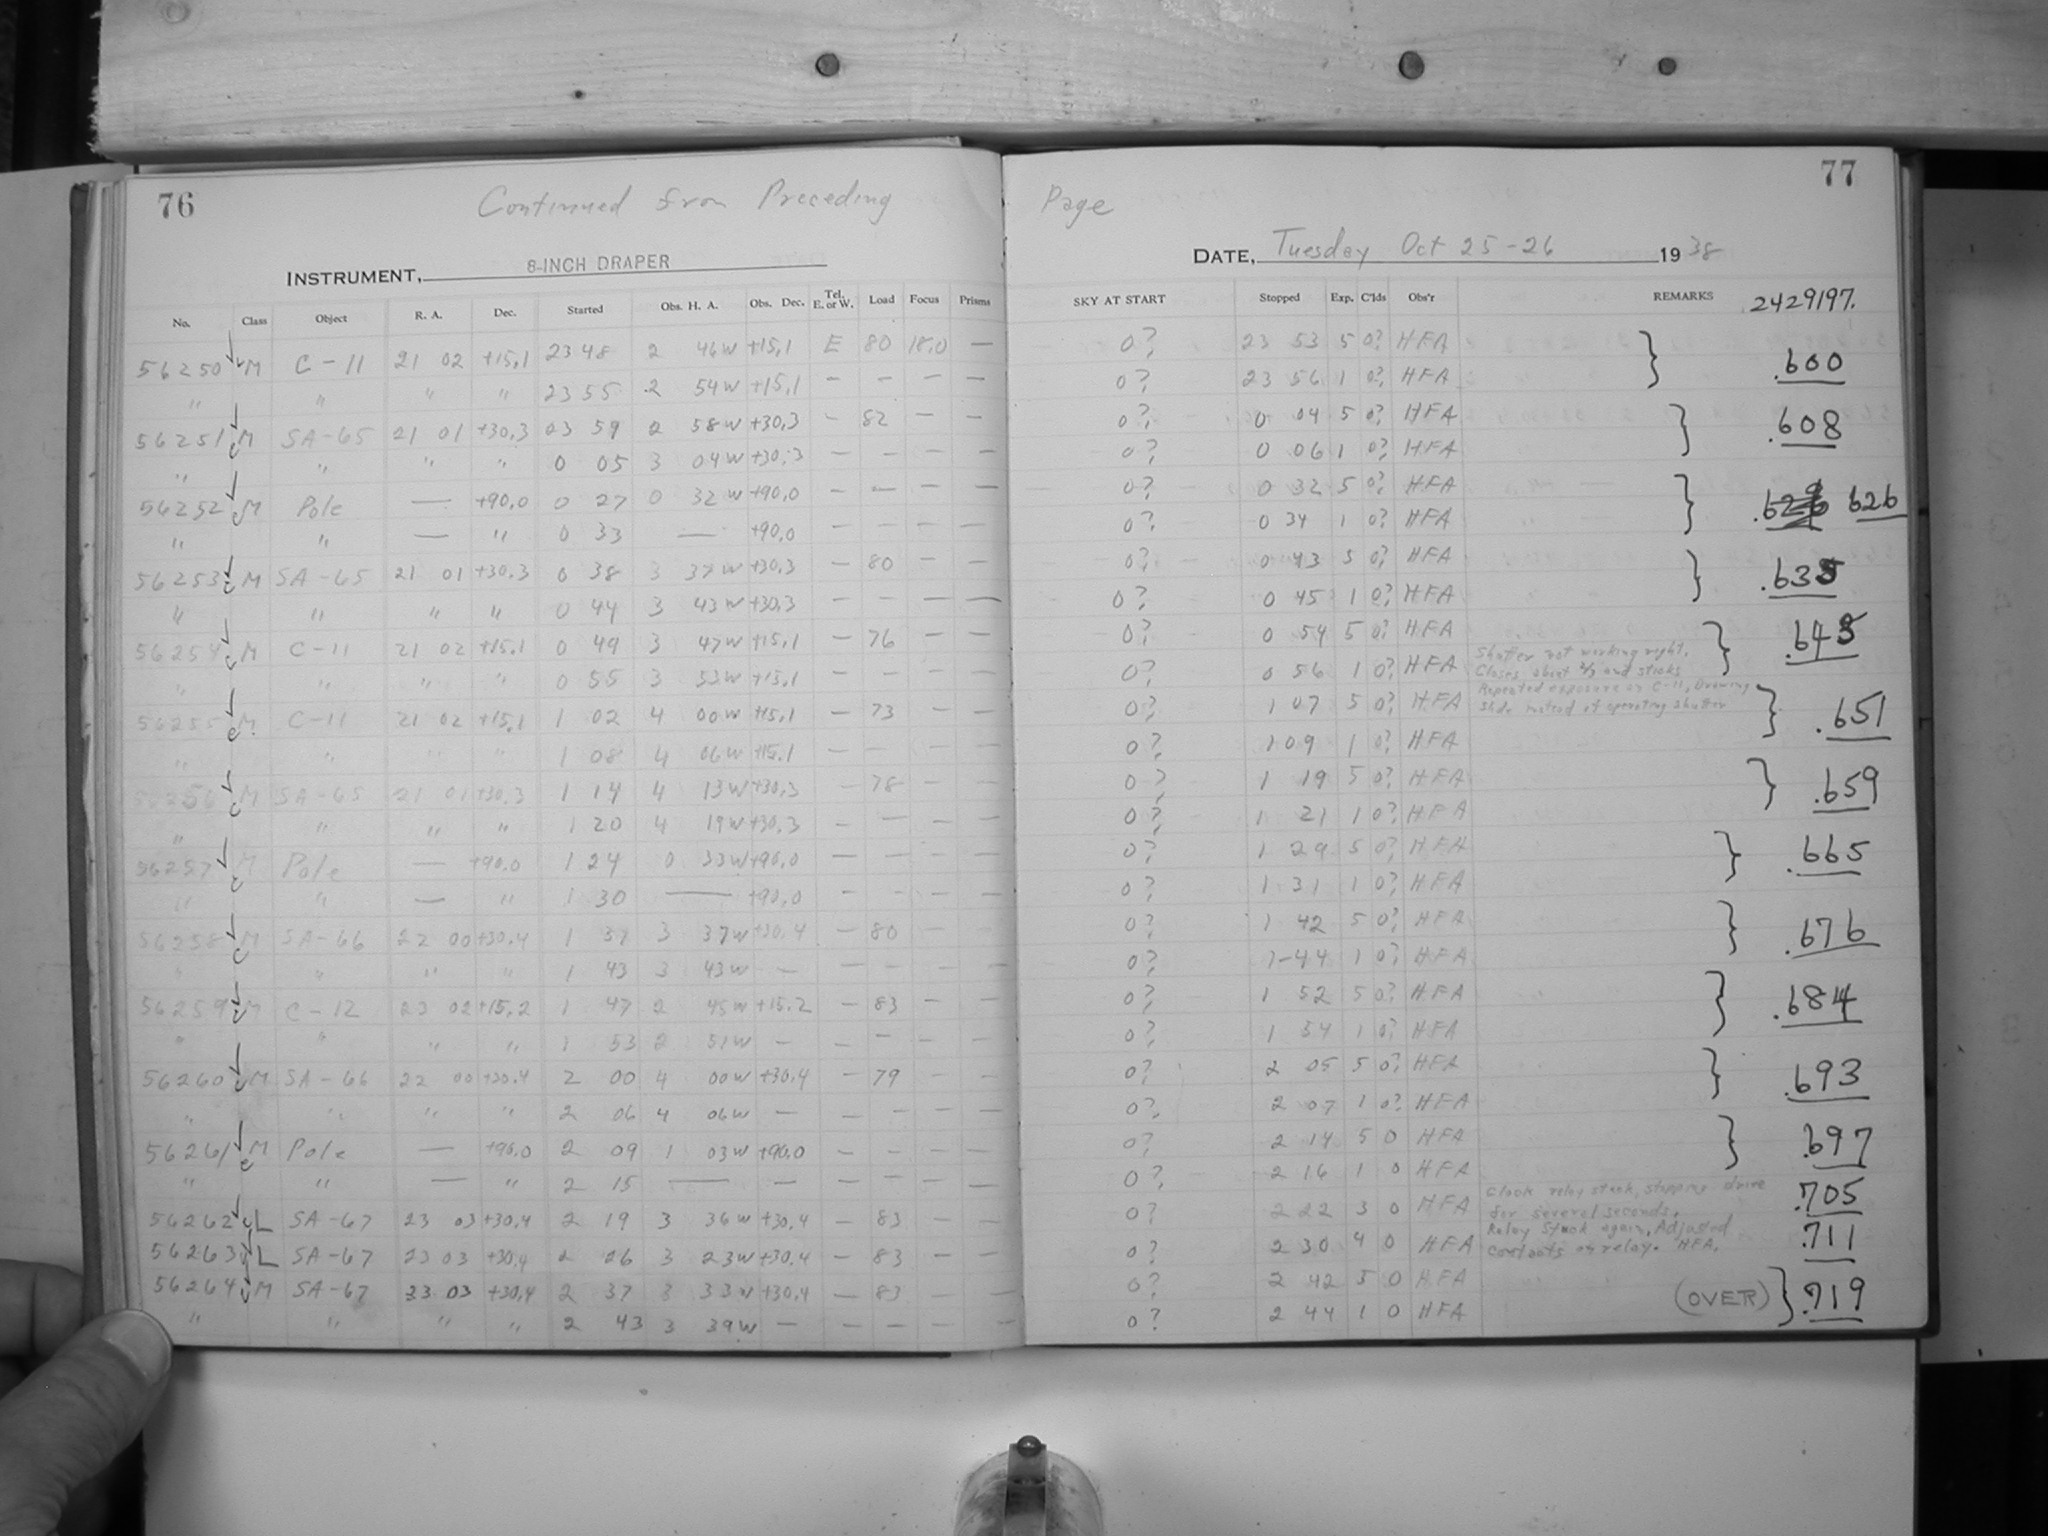 76 77
Continued from Preceding Page
INSTRUMENT, 8-INCH DRAPER DATE, Tuesday Oct 25-26 1938
No. Class Object R. A. Dec. Started Obs. H. A. Obs. Dec. Tel. E. or W. Load Focus Prisms SKY AT START Stopped Exp. C'lds Obs'r REMARKS 2429197.
56250 M C-11 21 02 +15.1 23 48 2 46W +15.1 E 80 18.0 — 0? 23 53 5 0? HFA } .600
" " " " 23 55 2 54W +15.1 — — — — 0? 23 56 1 0? HFA
56251 M SA-65 21 01 +30.3 23 59 2 58W +30.3 - 82 — — 0? 0 04 5 0? HFA } .608
" " " " 0 05 3 04W +30.3 — — — — 0? 0 06 1 0? HFA
56252 M Pole — +90.0 0 27 0 32W +90.0 — — — — 0? 0 32 5 0? HFA } 626
" " — " 0 33 — +90.0 — — — — 0? 0 34 1 0? HFA
56253 M SA-65 21 01 +30.3 0 38 3 37W +30.3 — 80 — — 0? 0 43 5 0? HFA } .635
" " " " 0 44 3 43W +30.3 — — — — 0? 0 45 1 0? HFA
56254 M C-11 21 02 +15.1 0 49 3 47W +15.1 — 76 — — 0? 0 54 5 0? HFA Shutter not working right. } .643
" " " " 0 55 3 53W +15.1 — — — — 0? 0 56 1 0? HFA Closes about 2/3 and sticks
56255 M C-11 21 02 +15.1 1 02 4 00W +15.1 — 73 — — 0? 1 07 5 0? HFA Repeated exposure on C-11, Drawing } .651
Slide instead of operating shutter
" " " " 1 08 4 06W +15.1 — — — — 0? 1 09 1 0? HFA
56256 M SA-65 21 01 +30.3 1 14 4 13W +30.3 — 78 — — 0? 1 19 5 0? HFA } .659
" " " " 1 20 4 19W +30.3 — — — — 0? 1 21 1 0? HFA
56257 M Pole — +90.0 1 24 0 33W +90.0 — — — — 0? 1 29 5 0? HFA } .665
" " — " 1 30 — +90.0 — — — — 0? 1 31 1 0? HFA
56258 M SA-66 22 00 +30.4 1 37 3 37W +30.4 — 80 — — 0? 1 42 5 0? HFA } .676
" " " " 1 43 3 43W — — — — — 0? 1-44 1 0? HFA
56259 M C-12 23 02 +15.2 1 47 2 45W +15.2 — 83 — — 0? 1 52 5 0? HFA } .684
" " " " 1 53 2 51W — — — — — 0? 1 54 1 0? HFA
56260 M SA-66 22 00 +30.4 2 00 4 00W +30.4 — 79 — — 0? 2 05 5 0? HFA } .693
" " " " 2 06 4 06W — — — — — 0? 2 07 1 0? HFA
56261 M Pole — +90.0 2 09 1 03W +90.0 — — — — 0? 2 14 5 0 HFA } .697
" " — " 2 15 — — — — — — 0? 2 16 1 0 HFA
Clock relay stuck, stopping drive
56262 L SA-67 23 03 +30.4 2 19 3 36W +30.4 — 83 — — 0? 2 22 3 0 HFA for several seconds. .705
Relay Stuck again, Adjusted
56263 L SA-67 23 03 +30.4 2 26 3 23W +30.4 — 83 — — 0? 2 30 4 0 HFA contacts on relay. HFA. .711
56264 M SA-67 23 03 +30.4 2 37 3 33W +30.4 — 83 — — 0? 2 42 5 0 HFA (OVER) } .719
" " " " 2 43 3 39W — — — — — 0? 2 44 1 0 HFA